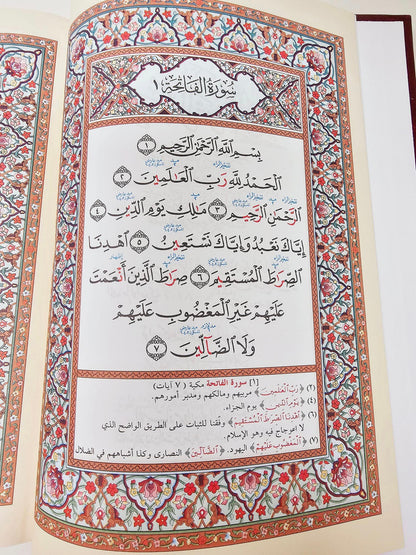 سورة الفاتحة ١
بِسْمِ ٱللَّهِ ٱلرَّحْمَٰنِ ٱلرَّحِيمِ ١
ٱلْحَمْدُ لِلَّهِ رَبِّ ٱلْعَٰلَمِينَ ٢
ٱلرَّحْمَٰنِ ٱلرَّحِيمِ ٣ مَٰلِكِ يَوْمِ ٱلدِّينِ ٤
إِيَّاكَ نَعْبُدُ وَإِيَّاكَ نَسْتَعِينُ ٥ ٱهْدِنَا
ٱلصِّرَٰطَ ٱلْمُسْتَقِيمَ ٦ صِرَٰطَ ٱلَّذِينَ أَنْعَمْتَ
عَلَيْهِمْ غَيْرِ ٱلْمَغْضُوبِ عَلَيْهِمْ
وَلَا ٱلضَّآلِّينَ ٧
[١] سورة الفاتحة مكية (٧ آيات)
(٢) ﴿رَبِّ ٱلْعَٰلَمِينَ﴾ مربيهم ومالكهم ومدبر أمورهم.
(٤) ﴿يَوْمِ ٱلدِّينِ﴾ يوم الجزاء.
(٦) ﴿ٱهْدِنَا ٱلصِّرَٰطَ ٱلْمُسْتَقِيمَ﴾ وفقنا للثبات على الطريق الواضح الذي
لا اعوجاج فيه وهو الإسلام.
(٧) ﴿ٱلْمَغْضُوبِ عَلَيْهِمْ﴾ اليهود. ﴿ٱلضَّآلِّينَ﴾ النصارى وكذا أشباههم في الضلال